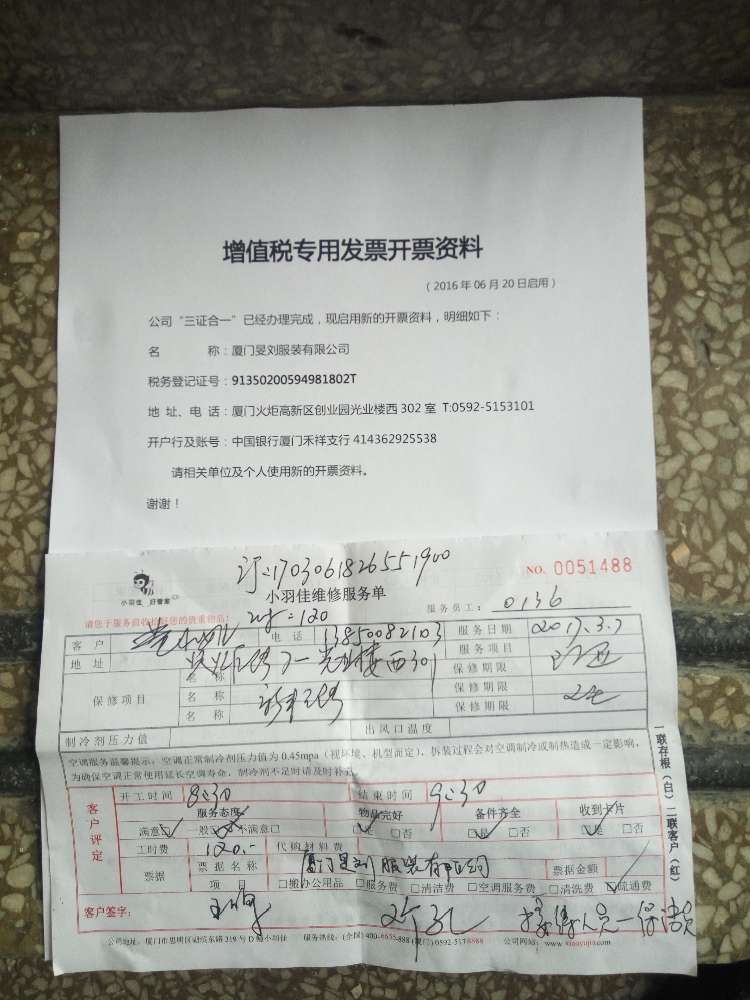 增值税专用发票开票资料
（2016年06月20日启用）
公司“三证合一”已经办理完成，现启用新的开票资料，明细如下：
名 称：厦门旻刘服装有限公司
税务登记证号：91350200594981802T
地 址、电 话：厦门火炬高新区创业园光业楼西302室 T:0592-5153101
开户行及账号：中国银行厦门禾祥支行 414362925538
请相关单位及个人使用新的开票资料。
谢谢！
订:1703061826551900
NO. 0051488
小羽佳 好管家
小羽佳维修服务单
120
服务员工： 0136
请您于服务前收拾好您的贵重物品！
客 户 电 话 13850082103 服务日期 2017.3.7
地 址 楼西301 服务项目
保修期限
保修项目 名 称
名 称 保修期限
名 称 保修期限
制冷剂压力值 出风口温度
空调服务温馨提示：空调正常制冷剂压力值为0.45mpa（视环境、机型而定），拆装过程会对空调制冷或制热造成一定影响，
为确保空调正常使用延长空调寿命，制冷剂不足时请及时补充
一联存根（白）二联客户（红）
客户评定
开工时间 8:30 结束时间 9:30
服务态度 物品完好 备件齐全 收到卡片
满意□ 一般□ 不满意□ □是 □否 □是 □否 □是 □否
工时费 120.- 代购材料费
票据 票据名称 厦门旻刘服装有限公司 票据金额
项 目 □搬办公用品 □服务费 □清洁费 □空调服务费 □清洗费 □疏通费
客户签字： 接待人员一保洁员
公司地址：厦门市思明区 319号D幢小羽佳 服务热线：（全国）400-6655-888（厦门）0592-5178888 公司网站：www.xiaoyujia.com